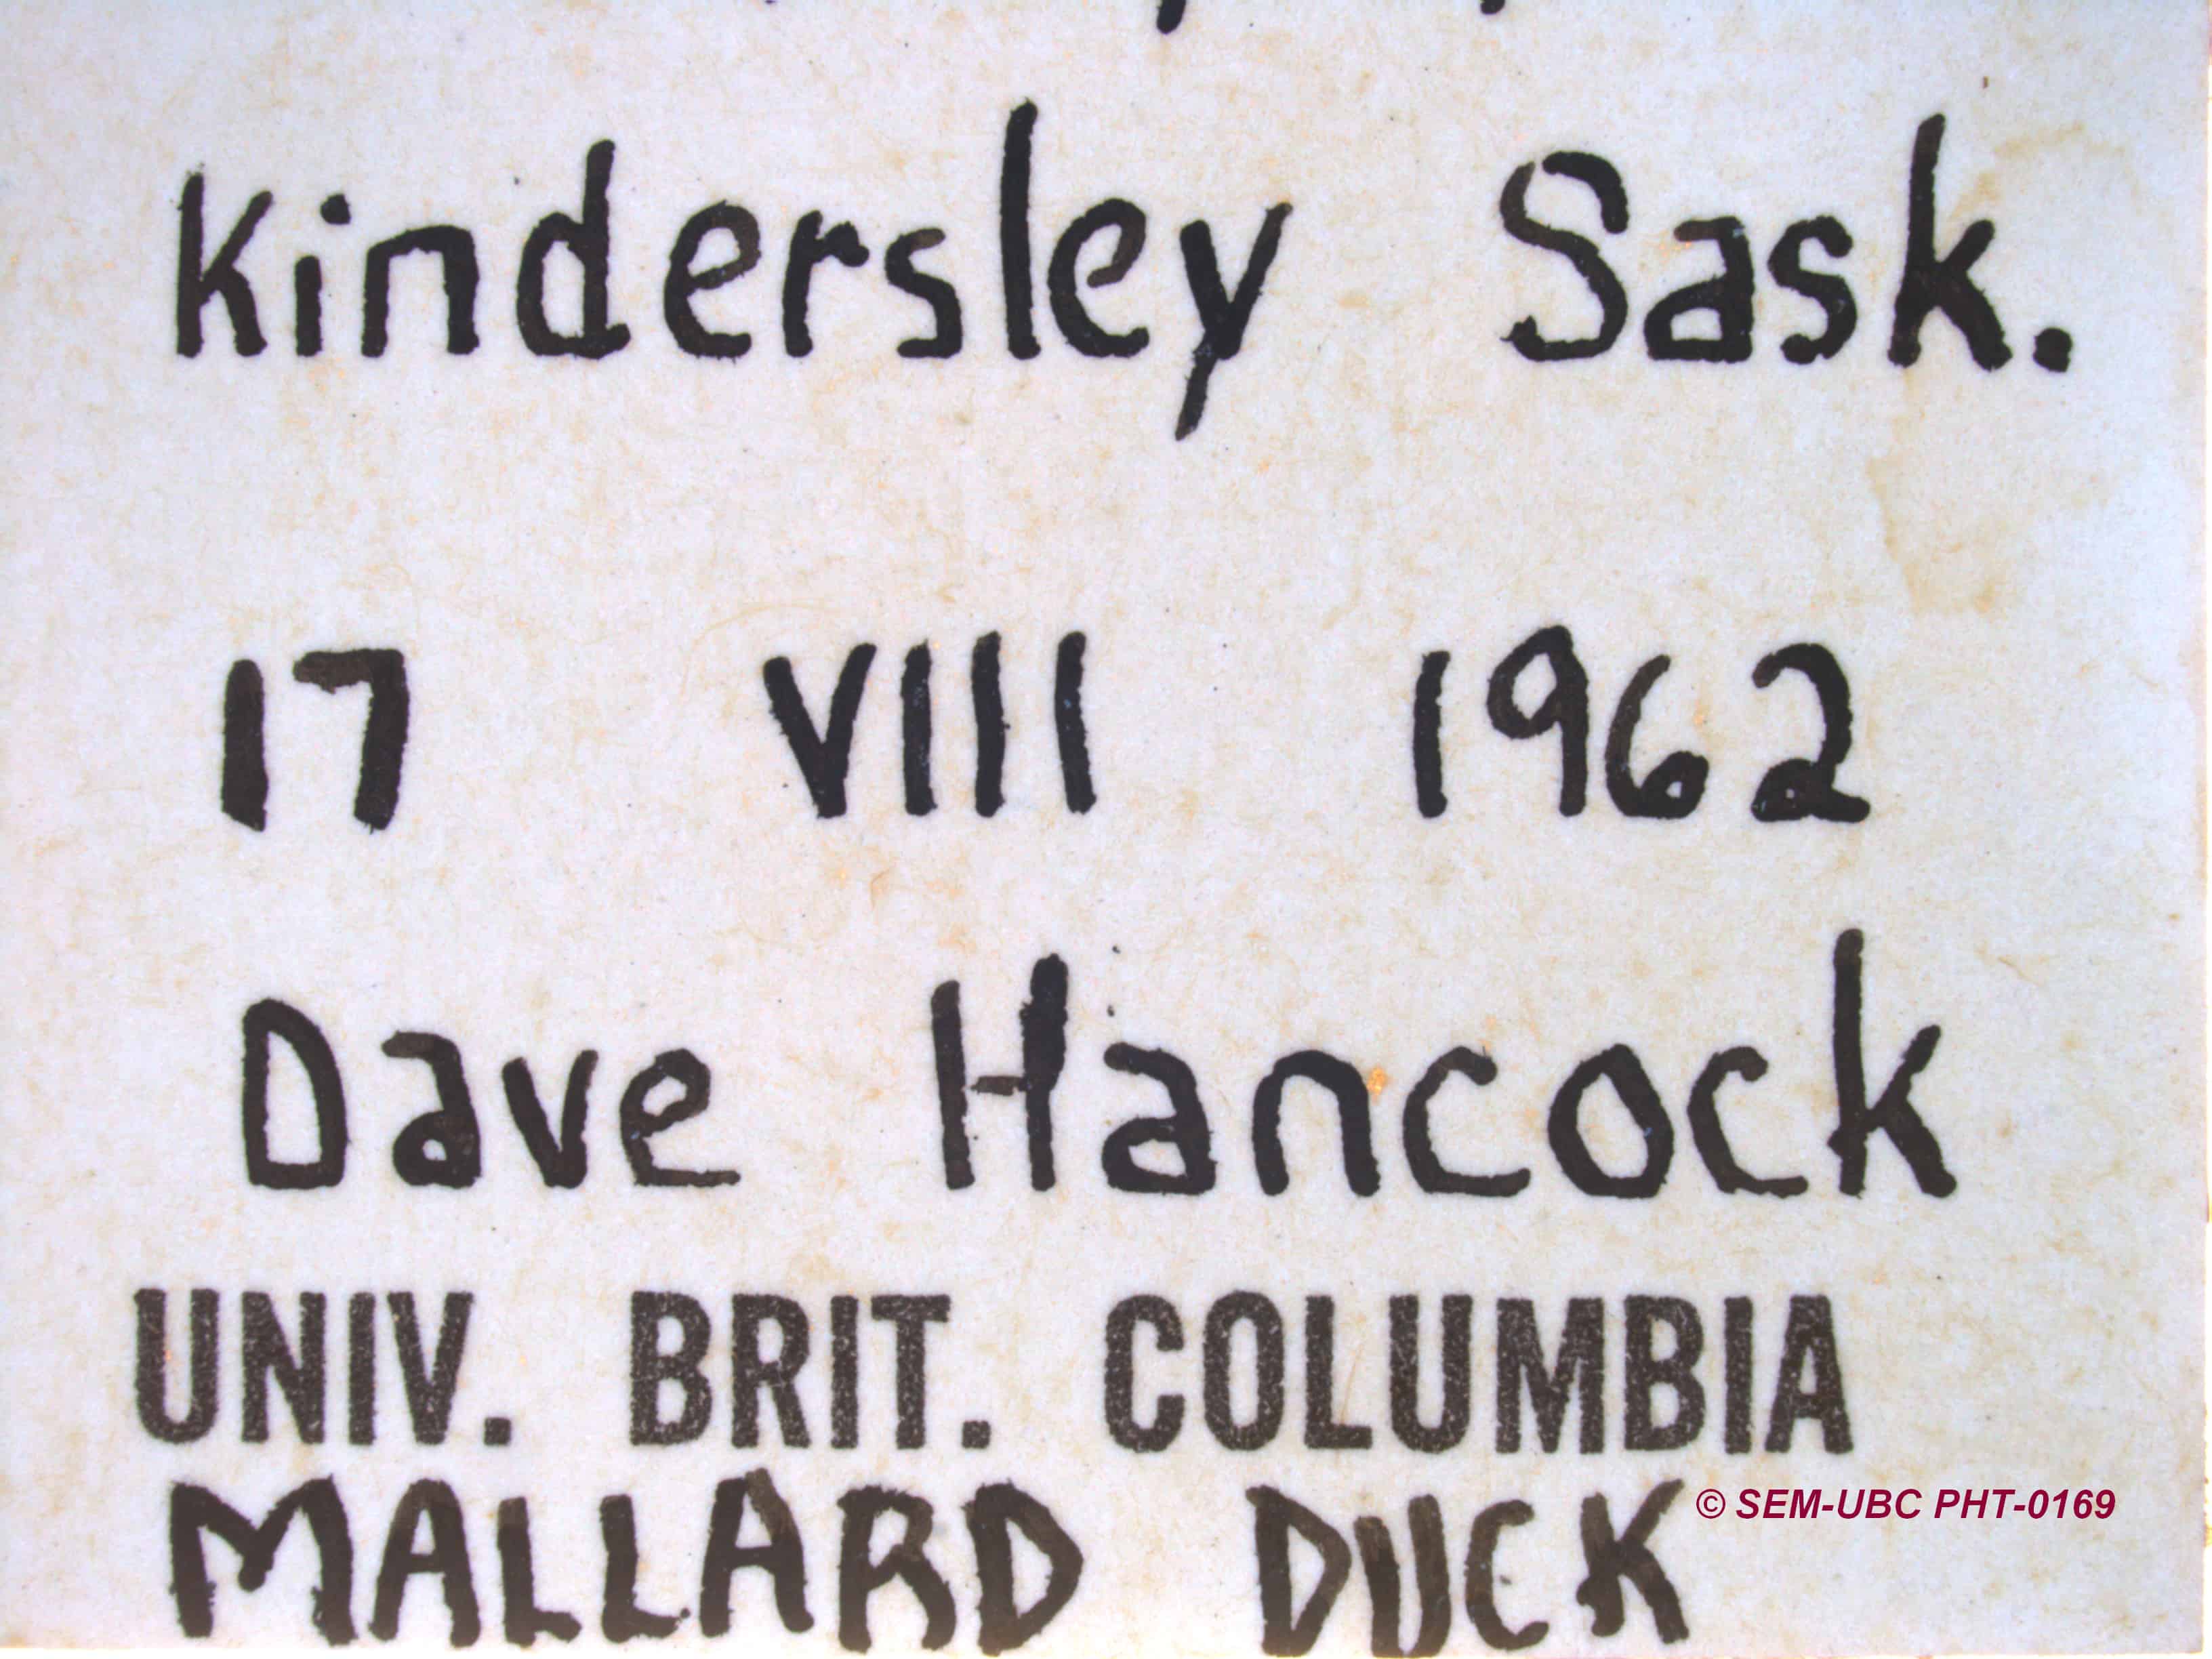 Kindersley Sask.
17 VIII 1962
Dave Hancock
UNIV. BRIT. COLUMBIA
MALLARD DUCK
© SEM-UBC PHT-0169